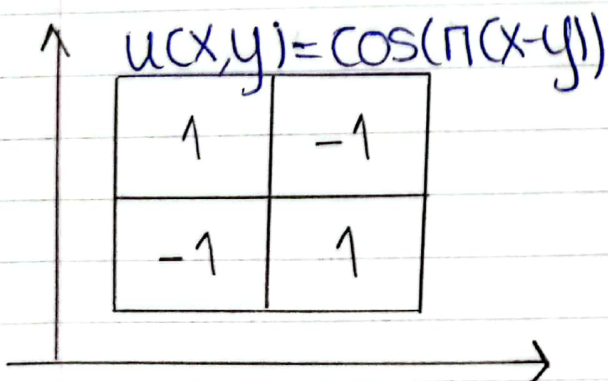 u(x,y)=cos(π(x-y))
1 -1
-1 1